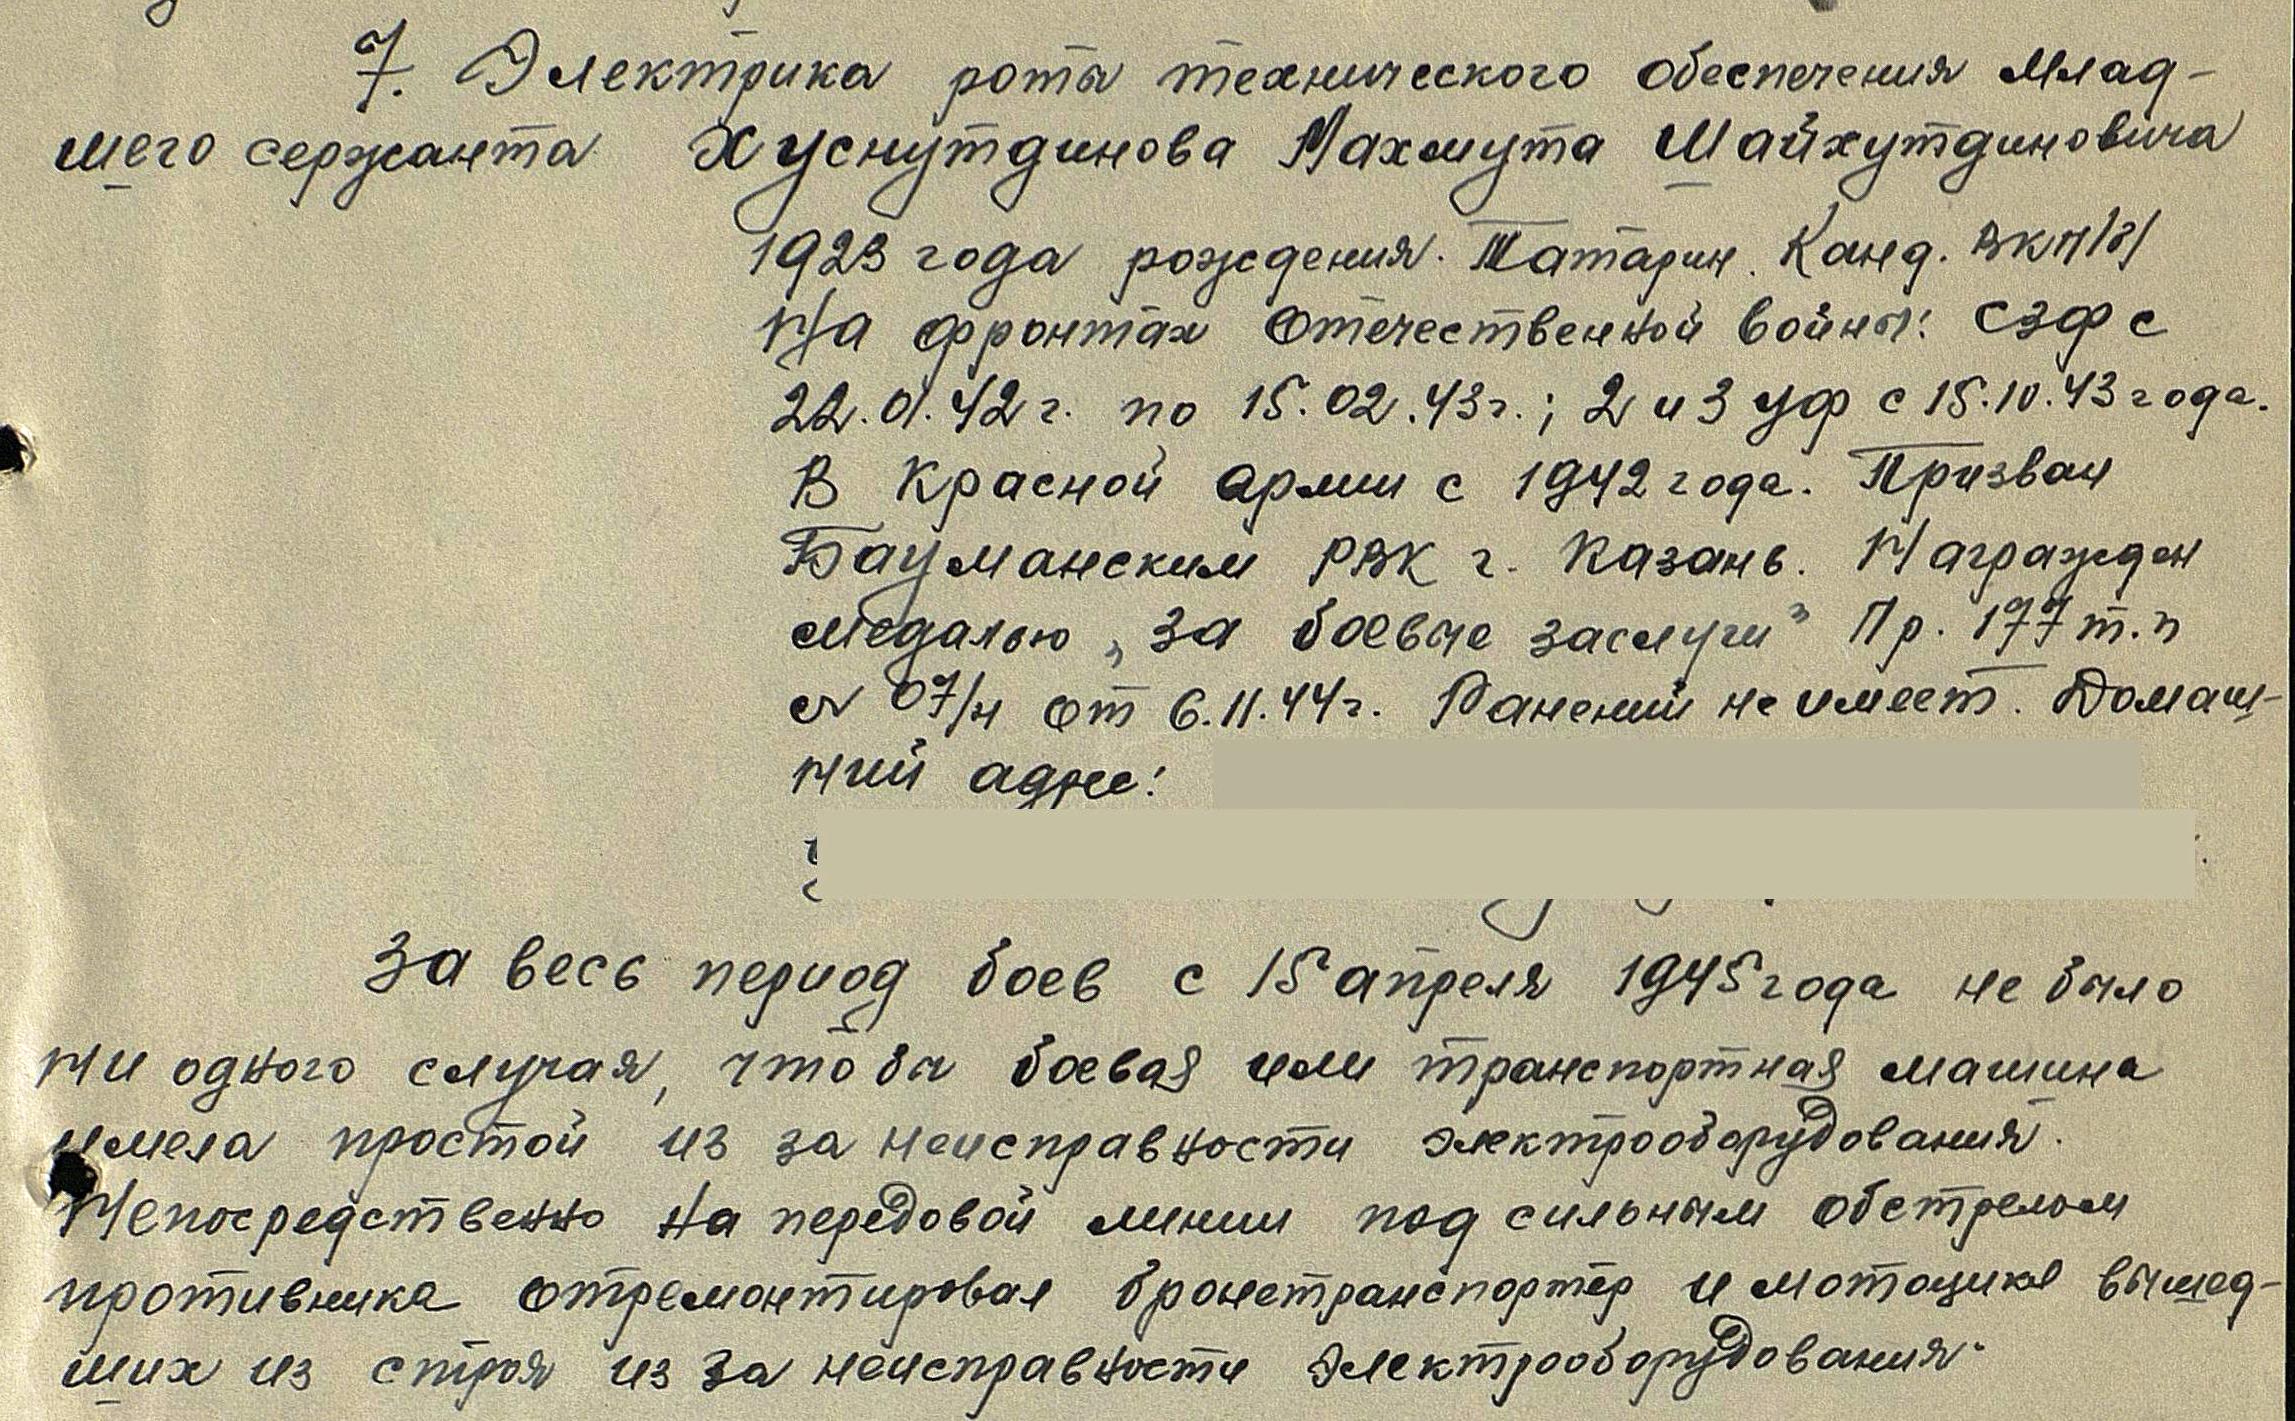 7. Электрика роты технического обеспечения млад-
шего сержанта Хуснутдинова Махмута Шайхутдиновича
1923 года рождения. Татарин. Канд. ВКП/б/
На фронтах Отечественной войны: СЗФ с
22.01.42 г. по 15.02.43 г.; 2 и 3 УФ с 15.10.43 года.
В Красной армии с 1942 года. Призван
Бауманским РВК г. Казань. Награжден
медалью „За боевые заслуги" Пр. 177 т.п
№ 07/н от 6.11.44 г. Ранений не имеет. Домаш-
ний адрес:
За весь период боев с 15 апреля 1945 года не было
ни одного случая, чтобы боевая или транспортная машина
имела простой из за неисправности электрооборудования.
Непосредственно на передовой линии под сильным обстрелом
противника отремонтировал бронетранспортер и мотоцикл вышед-
ших из строя из за неисправности электрооборудования.